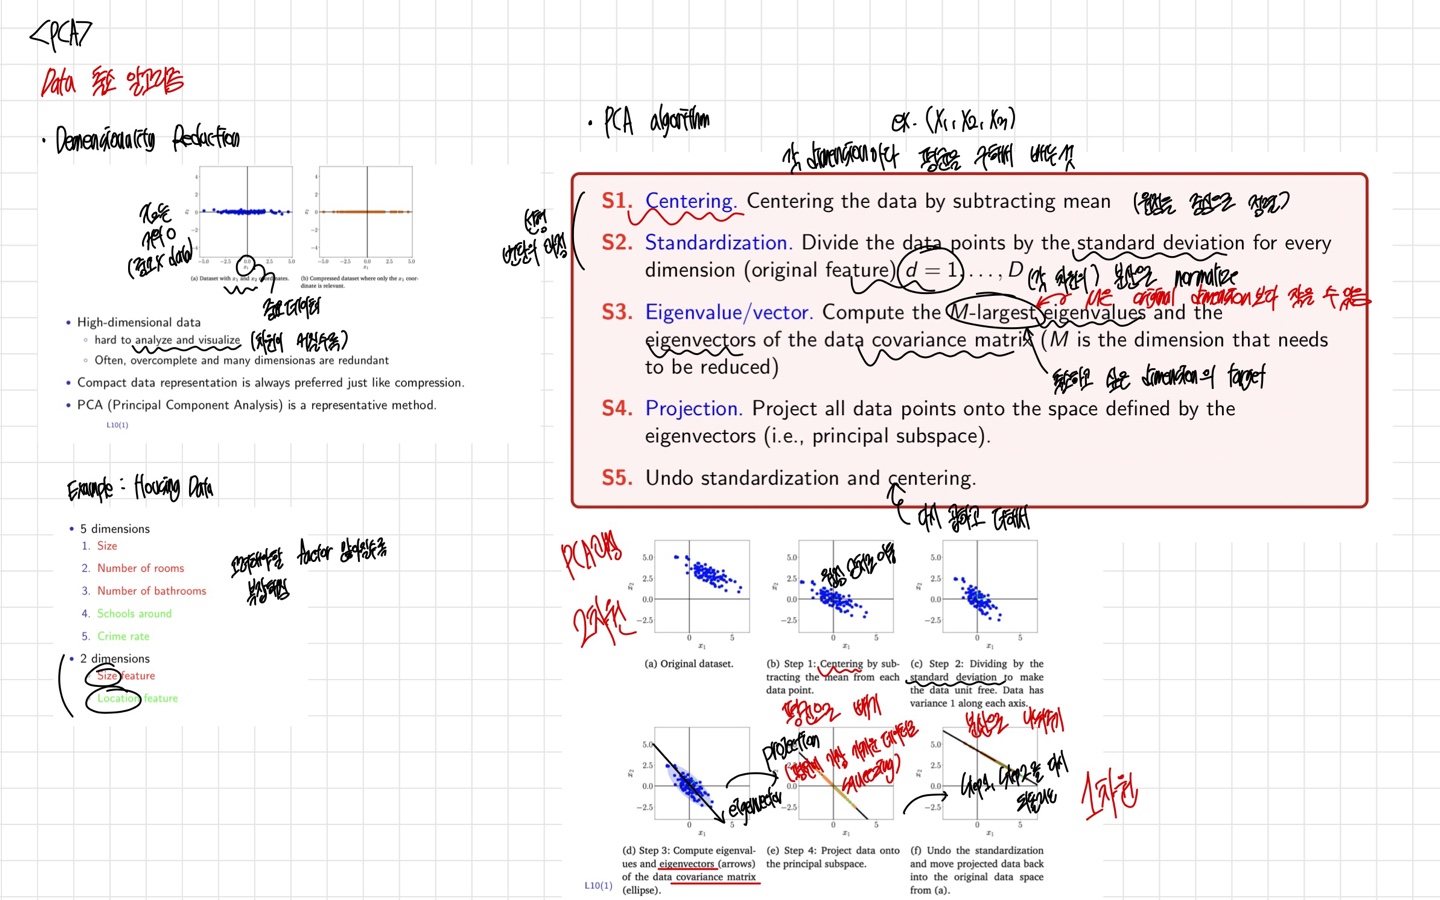 <PCA>
Data 축소 알고리즘
• Demensiouality Reduction
(a) Dataset with x₁ and x₂ coordinates.
(b) Compressed dataset where only the x₁ coor-
dinate is relevant.
중요 데이터
• High-dimensional data
◦ hard to analyze and visualize
◦ Often, overcomplete and many dimensionas are redundant
• Compact data representation is always preferred just like compression.
• PCA (Principal Component Analysis) is a representative method.
L10(1)
Example : Housing Data
• 5 dimensions
1. Size
2. Number of rooms
3. Number of bathrooms
4. Schools around
5. Crime rate
• 2 dimensions
Size feature
Location feature
고려해야할 factor 많아질수록
복잡해짐
• PCA algorithm
ex. (X₁, X₂, X₃)
각 dimension마다 평균을 구해서 빼는 것
S1. Centering. Centering the data by subtracting mean (원점을 중심으로 정렬)
S2. Standardization. Divide the data points by the standard deviation for every
dimension (original feature) d = 1, . . . , D (각 차원의) 분산으로 normalize
M은 original dimension보다 작을 수 있음
S3. Eigenvalue/vector. Compute the M-largest eigenvalues and the
eigenvectors of the data covariance matrix (M is the dimension that needs
to be reduced)
축소하고 싶은 dimension의 target
S4. Projection. Project all data points onto the space defined by the
eigenvectors (i.e., principal subspace).
S5. Undo standardization and centering.
다시 곱하고 더해서
PCA과정
2차원
(a) Original dataset.
(b) Step 1: Centering by sub-
tracting the mean from each
data point.
평균으로 빼기
(c) Step 2: Dividing by the
standard deviation to make
the data unit free. Data has
variance 1 along each axis.
분산으로 나눠주기
eigenvector
projection
(평면에 가장 가까운 데이터로
squeezing)
step1, step2를 다시
되돌리는
1차원
(d) Step 3: Compute eigenval-
ues and eigenvectors (arrows)
of the data covariance matrix
(ellipse).
(e) Step 4: Project data onto
the principal subspace.
(f) Undo the standardization
and move projected data back
into the original data space
from (a).
L10(1)